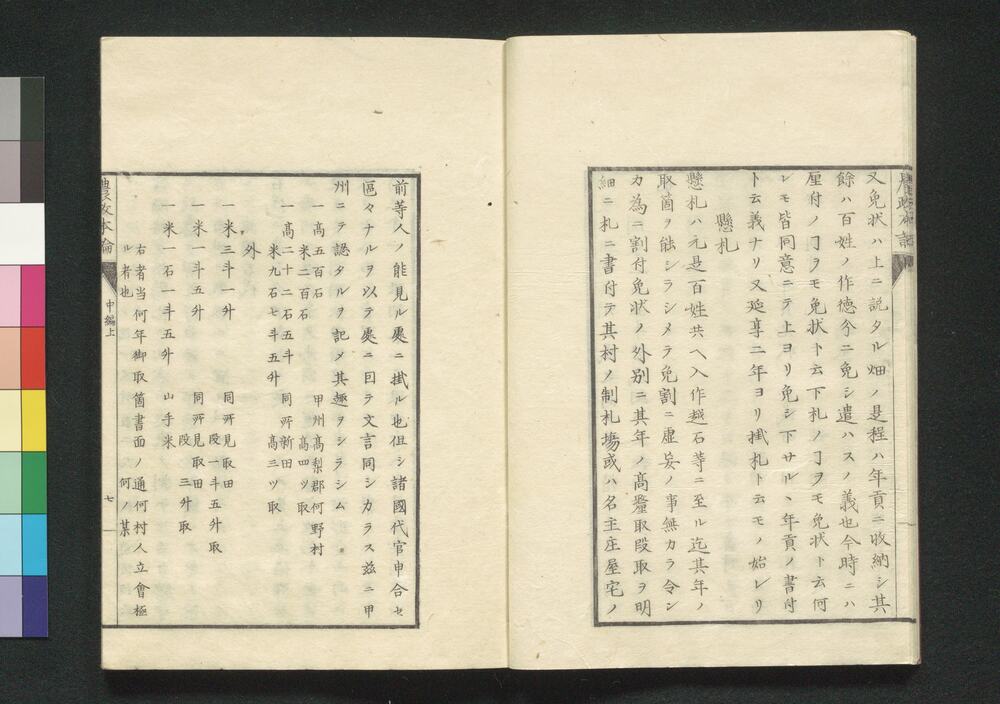 又免状ハ上ニ説タル畑ノ是程ハ年貢ニ収納シ其
餘ハ百姓ノ作徳今ニ免シ遣ハスノ義也今時ニハ
厘付ノ㕝ヲモ免状ト云下札ノ㕝ヲモ免状ト云何
レモ皆同意ニテ上ヨリ免シ下サルヽ年貢ノ書付
ト云義ナリ又延享二年ヨリ掛札ト云モノ始レリ
懸札
懸札ハ元是百姓共ヘ入作越石等ニ至ル迄其年ノ
取箇ヲ能シラシメテ免割ニ虚妄ノ事無カラ令ン
カ為ニ割付免状ノ外別ニ其年ノ高釐取段取ヲ明
細ニ札ニ書付テ其村ノ制札場或ハ名主庄屋宅ノ
前等人ノ能見ル處ニ掛ル也但シ諸國代官申合セ
區々ナルヲ以テ處ニ因テ文言同シカラス茲ニ甲
州ニテ認タルヲ記メ其趣ヲシラシム
一高五百石 甲州高梨郡何野村
米二百石 高四ツ取
一高二十二石五斗 同所新田
米九石七斗五升 高三ツ取
外
一米三斗一升 同所見取田
段一斗五升取
一米一斗五升 同所見取田
段三升取
一米一石一斗五升 山手米
右者当何年御取箇書面ノ通何村人立會極
ル者也 何ノ某
農政本論 中編上 七